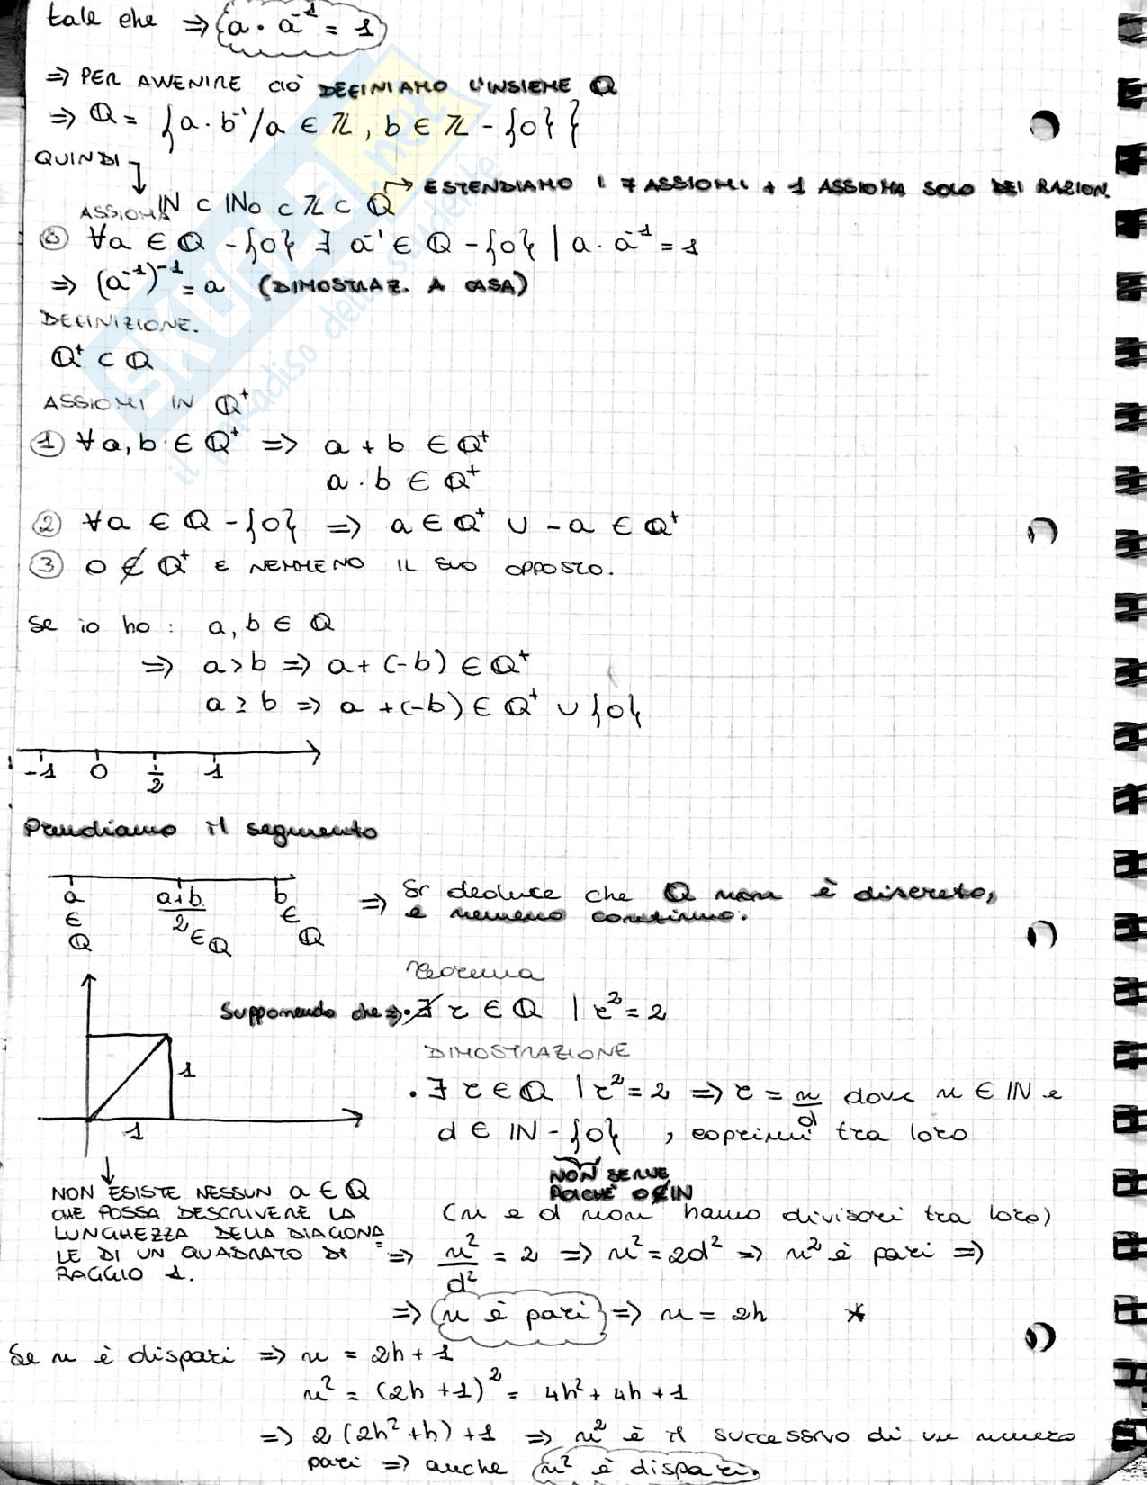 tale che ⇒ {a · a⁻¹ = 1}
⇒ PER AVVENIRE CIÒ DEFINIAMO L'INSIEME ℚ
⇒ ℚ = {a · b⁻¹ / a ∈ ℤ, b ∈ ℤ - {0}}
QUINDI
↳ ESTENDIAMO I 7 ASSIOMI + 1 ASSIOMA SOLO DEI RAZION.
ℕ ⊂ ℕ₀ ⊂ ℤ ⊂ ℚ
ASSIOMA
⑧ ∀a ∈ ℚ - {0} ∃ a⁻¹ ∈ ℚ - {0} | a · a⁻¹ = 1
⇒ (a⁻¹)⁻¹ = a (DIMOSTRAZ. A CASA)
DEFINIZIONE.
ℚ⁺ ⊂ ℚ
ASSIOMI IN ℚ⁺
① ∀a, b ∈ ℚ⁺ ⇒ a + b ∈ ℚ⁺
a · b ∈ ℚ⁺
② ∀a ∈ ℚ - {0} ⇒ a ∈ ℚ⁺ ∪ -a ∈ ℚ⁺
③ 0 ∉ ℚ⁺ E NEMMENO IL SUO OPPOSTO.
Se io ho : a, b ∈ ℚ
⇒ a > b ⇒ a + (-b) ∈ ℚ⁺
a ≥ b ⇒ a + (-b) ∈ ℚ⁺ ∪ {0}
-1 0 1/2 1
Prendiamo il segmento
a ∈ ℚ (a+b)/2 ∈ ℚ b ∈ ℚ
⇒ Si deduce che ℚ non è discreto,
e nemeno continuo.
Teorema
Supponendo che ⇒ · ∄ r ∈ ℚ | r² = 2
DIMOSTRAZIONE
1
1
· ∃ r ∈ ℚ | r² = 2 ⇒ r = n/d dove n ∈ ℕ e
d ∈ ℕ - {0} , coprimi tra loro
NON SERVE
POICHÈ 0 ∉ ℕ
(n e d non hanno divisori tra loro)
NON ESISTE NESSUN a ∈ ℚ
CHE POSSA DESCRIVERE LA
LUNGHEZZA DELLA DIAGONA
LE DI UN QUADRATO DI
RAGGIO 1.
⇒ n²/d² = 2 ⇒ n² = 2d² ⇒ n² è pari ⇒
⇒ (n è pari) ⇒ n = 2h *
Se n è dispari ⇒ n = 2h + 1
n² = (2h + 1)² = 4h² + 4h + 1
⇒ 2 (2h² + h) + 1 ⇒ n² è il successivo di un numero
pari ⇒ anche (n² è dispari.)
SKUOLA.net
il paradiso dello studente